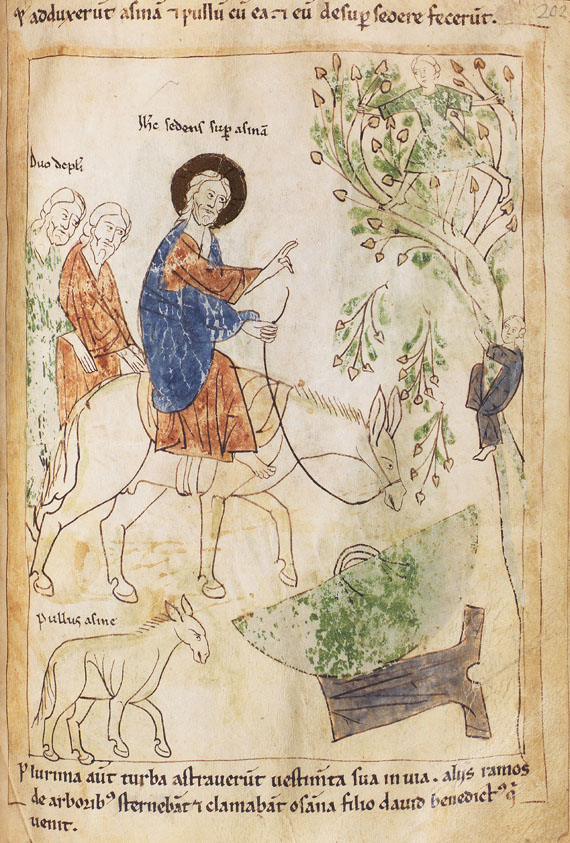 ⁊ adduxerūt asinā ⁊ pullū cū ea ⁊ eū desuꝑ sedere fecerūt.
202
Ih̄c sedens suꝑ asinā
Duo depli
pullus asine
Plurima aūt turba astraverūt vestim̄ta sua in via. alijs ramos
de arborib⁹ sternebāt ⁊ clamabāt osāna filio david benedict⁹ q̄
venit.